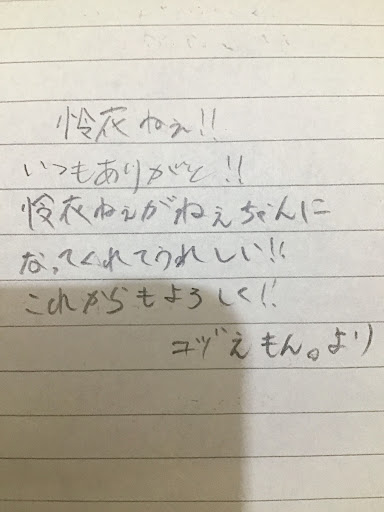 怜衣ねぇ!!
いつもありがと!!
怜衣ねぇがねぇちゃんに
なってくれてうれしい!!
これからもよろしく!!
コヅえもん。より